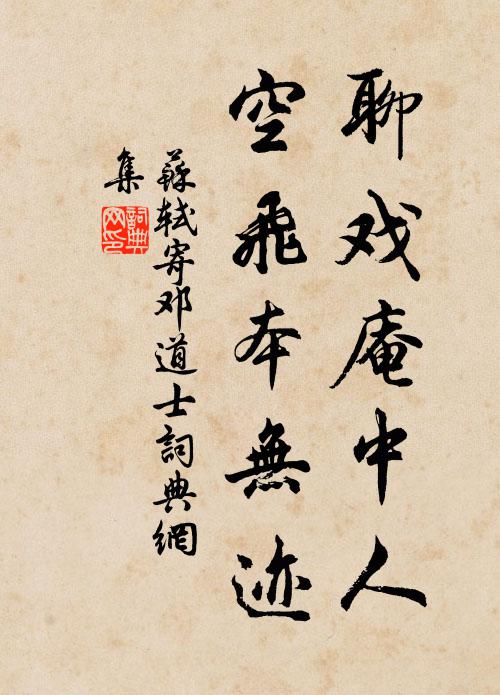 聊戏庵中人
空飛本無迹
蘇轼寄邓道士詞典網
集
詞典
网印